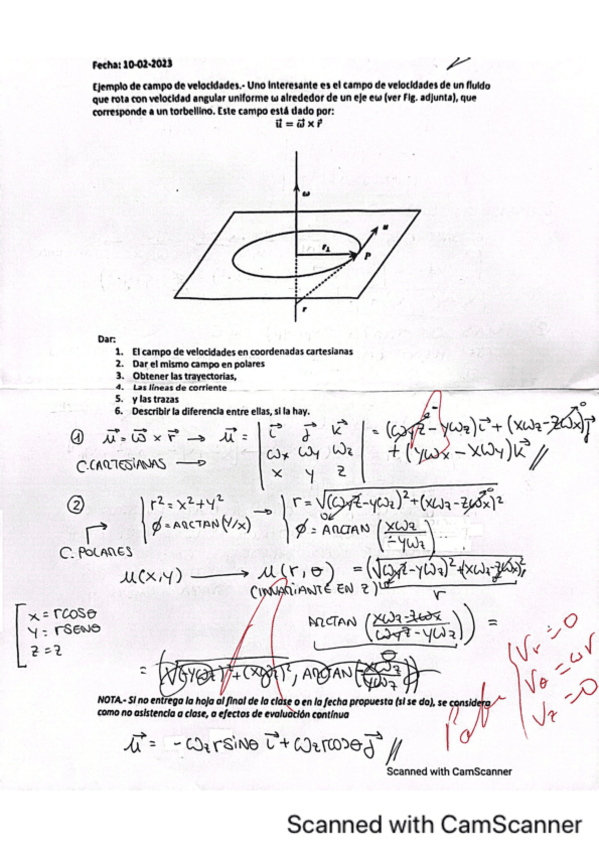 Fecha: 10-02-2023
Ejemplo de campo de velocidades.- Uno interesante es el campo de velocidades de un fluido
que rota con velocidad angular uniforme ω alrededor de un eje eω (ver Fig. adjunta), que
corresponde a un torbellino. Este campo está dado por:
u⃗ = ω⃗ × r⃗
ω
u
r⊥
P
r
Dar:
1. El campo de velocidades en coordenadas cartesianas
2. Dar el mismo campo en polares
3. Obtener las trayectorias,
4. Las líneas de corriente
5. y las trazas
6. Describir la diferencia entre ellas, si la hay.
① u⃗ = ω⃗ × r⃗ → u⃗ = | i⃗ j⃗ k⃗ | = (ωyz - yωz)i⃗ + (xωz - zωx)j⃗
C. CARTESIANAS → | ωx ωy ωz | + (yωx - xωy)k⃗ //
| x y z |
② { r² = x² + y² → { r = √(ωyz - yωz)² + (xωz - zωx)²
{ φ = ARCTAN (y/x) { φ = ARCTAN (xωz / -yωz)
C. POLARES
u(x,y) → u(r, θ) = (√(ωyz - yωz)² + (xωz - zωx)²,
(INVARIANTE EN z) r
x = rcosθ
y = rsenθ
z = z
ARCTAN (xωz - zωx / (ωyz - yωz)) =
= (√(-yωz)² + (xωz)², ARCTAN (-xωz / yωz))
Vr = 0
Vθ = ωr
Vz = 0
NOTA.- Si no entrega la hoja al final de la clase o en la fecha propuesta (si se da), se considera
como no asistencia a clase, a efectos de evaluación continua
u⃗ = -ωz r sinθ i⃗ + ωz r cosθ j⃗ //
Scanned with CamScanner
Scanned with CamScanner